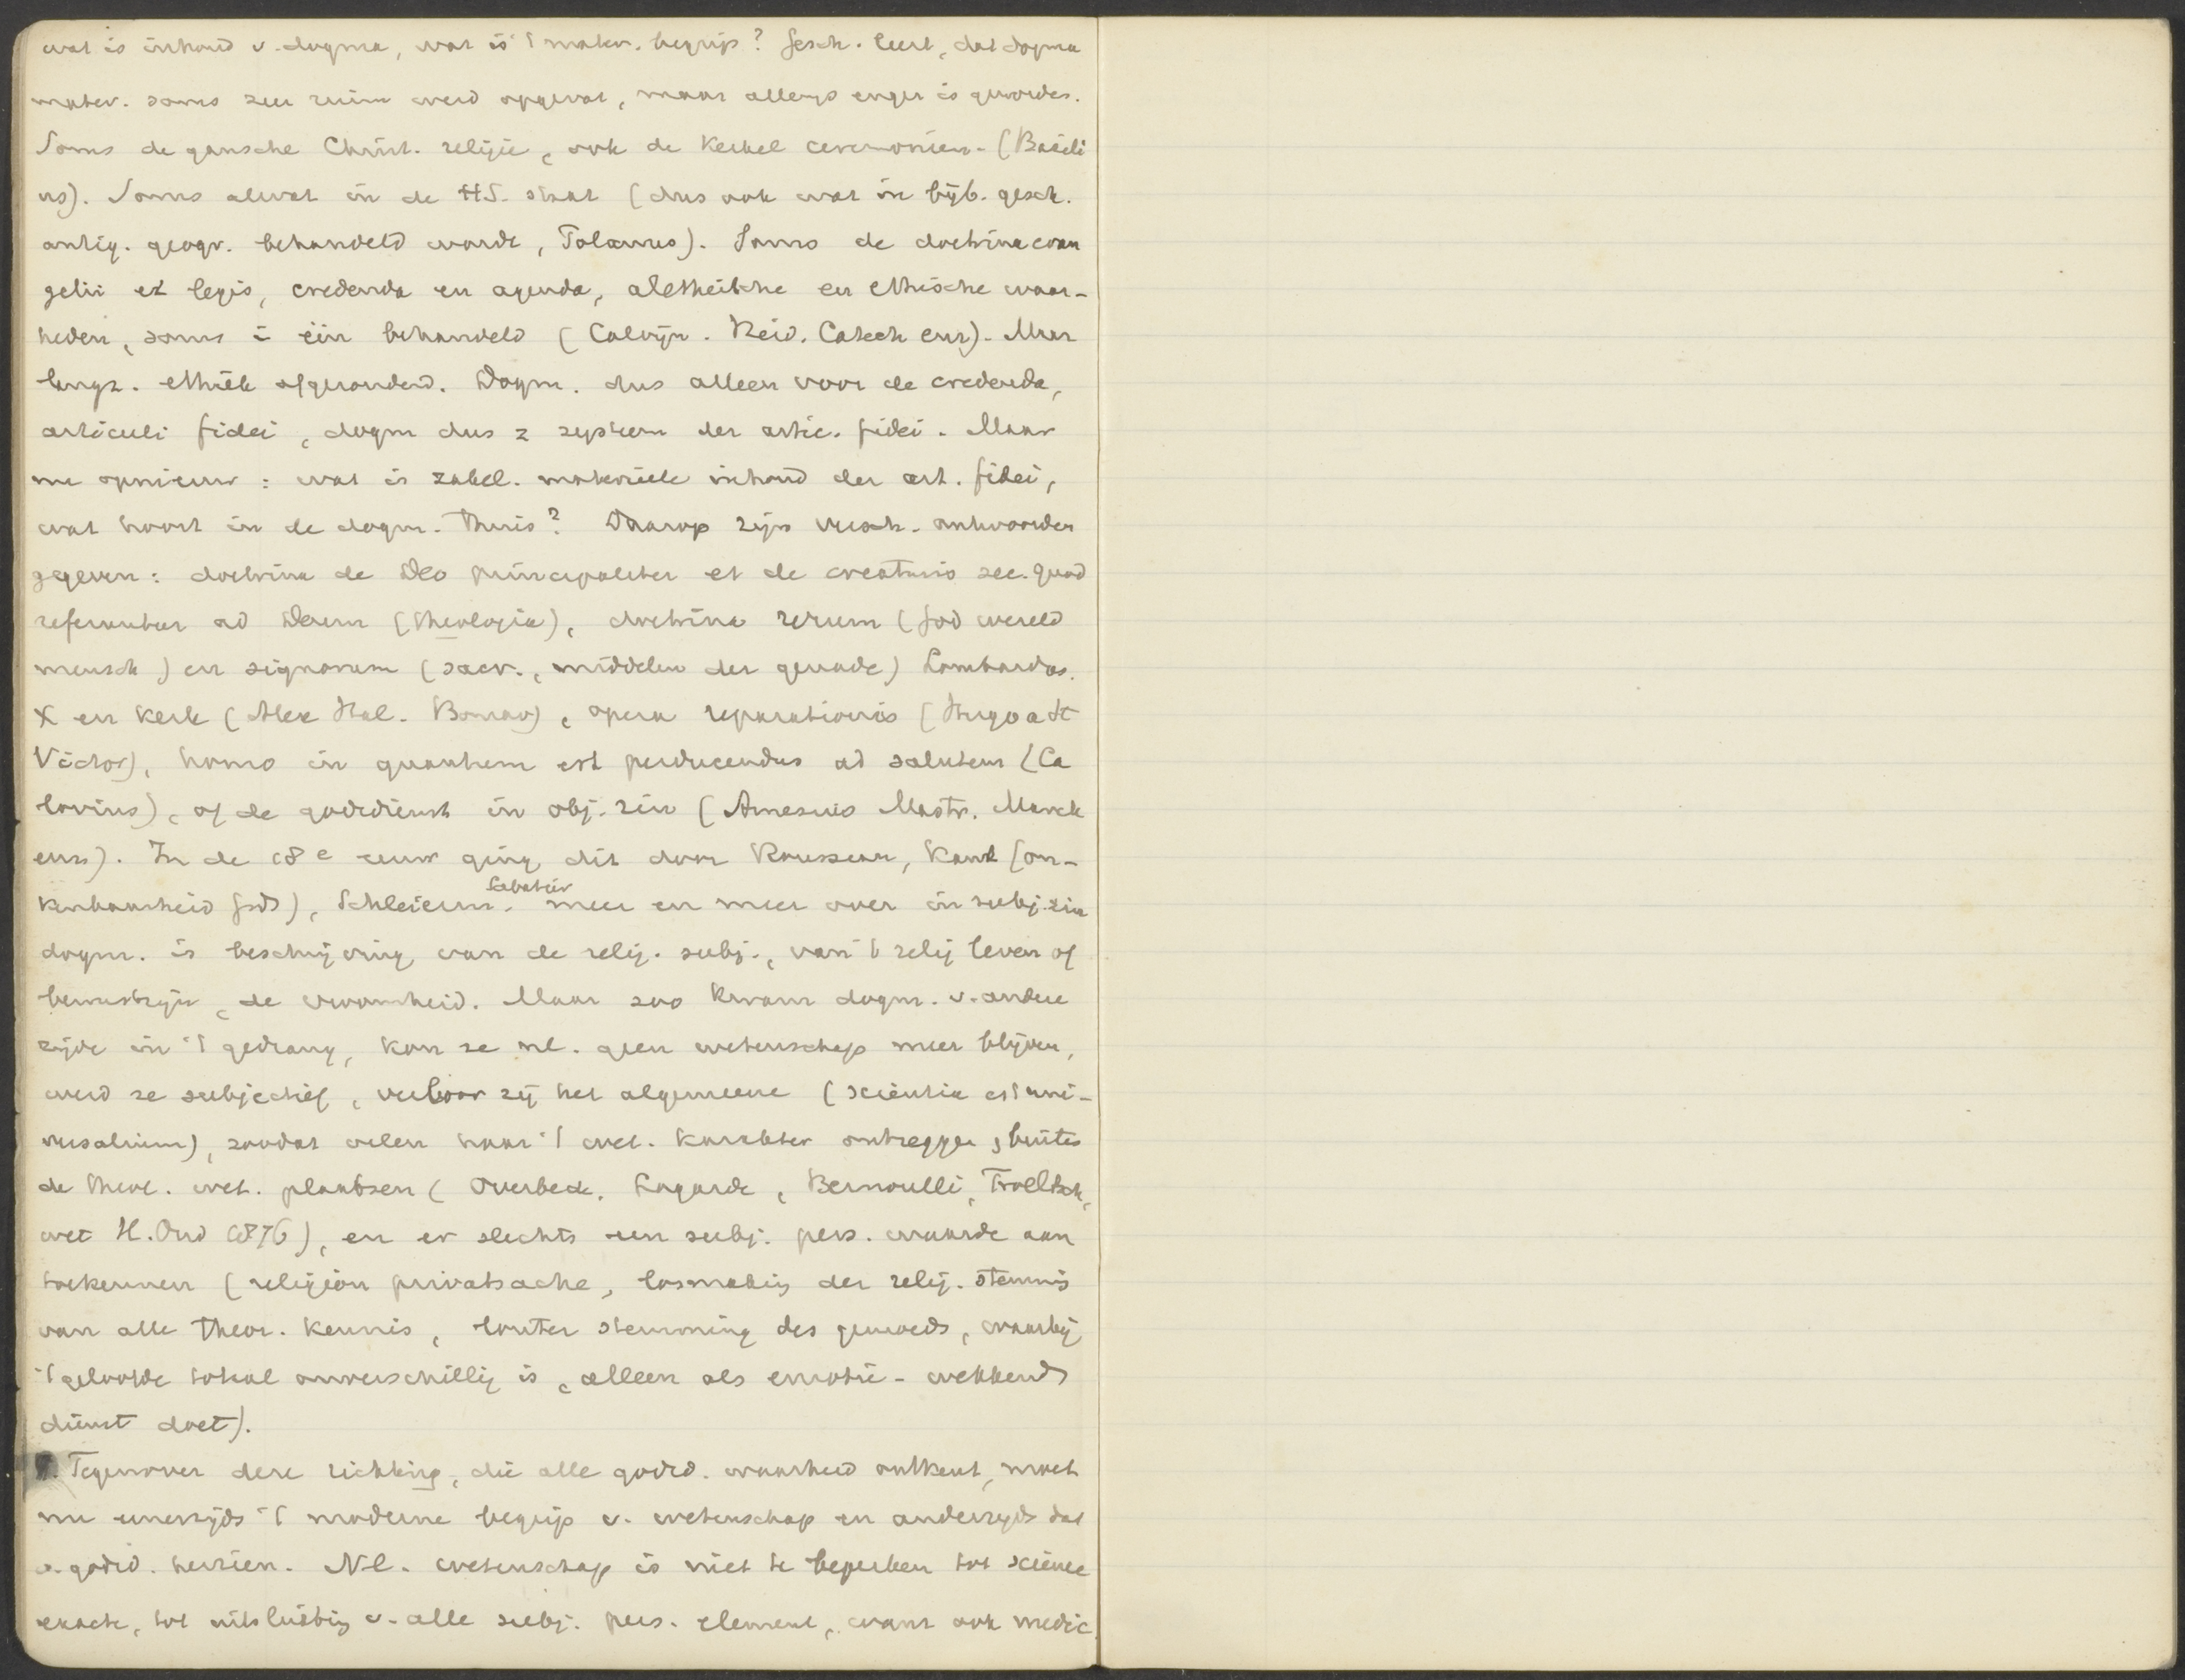 wat is inhoud v. dogma, wat is 't mater. begrip? Gesch. leert, dat dogma
mater. soms zeer ruim werd opgevat, maar allengs enger is geworden.
Soms de gansche Christ. religie, ook de kerkel ceremoniën - (Basili
us). Soms alwat in de H.S. staat (dus ook wat in bijb. gesch.
antiq. geogr. behandeld wordt, Polanus). Soms de doctrina evan
gelii et legis, credenda en agenda, aletheïsche en ethische waar-
heden, soms in één behandeld (Calvijn. Heid. Catech enz). Maar
langz. ethiek afgezonderd. Dogm. dus alleen voor de credenda,
articuli fidei, dogm dus = systeem der artic. fidei. Maar
nu opnieuw: wat is zakel. materieele inhoud der art. fidei,
wat hoort in de dogm. thuis? Daarop zijn versch. antwoorden
gegeven: doctrina de Deo principaliter et de creaturis sec. quod
referuntur ad Deum (theologia), doctrina rerum (God wereld
mensch) en signorum (sacr., middelen der genade) Lombardus.
X en kerk (Alex Hal. Bonav), opera reparationis (Hugo a St
Victor), homo in quantum est perducendus ad salutem (Ca
lovius), of de godsdienst in obj. zin (Amesius Mastr. Marck
enz). In de 18e eeuw ging dit door Rousseau, Kant (on-
kenbaarheid Gods), Schleierm. Sabatier meer en meer over in subj. zin
dogm. is beschrijving van de relig. subj., van 't relig leven of
bewustzijn, de vroomheid. Maar zoo kwam dogm. v. andere
zijde in 't gedrang, kon ze nl. geen wetenschap meer blijven,
werd ze subjectief, verloor zij het algemeene (scientia est uni-
versalium), zoodat velen haar 't wet. karakter ontzeggen, buiten
de theol. wet. plaatsen (Overbeck, Lagarde, Bernoulli, Troeltsch,
wet H. Ond 1876), en er slechts een subj. pers. waarde aan
toekennen (religion privatsache, losmaking der relig. stemmis
van alle theor. kennis, louter stemming des gemoeds, waarbij
't geloofde totaal onverschillig is, alleen als emotie-wekkend
dienst doet).
Tegenover deze richting, die alle godsd. waarheid ontkent, moet
nu eenerzijds 't moderne begrip v. wetenschap en anderzijds dat
v. godsd. herzien. Nl. wetenschap is niet te beperken tot science
exacte, tot uitsluiting v. alle subj. pers. element, want ook medic.